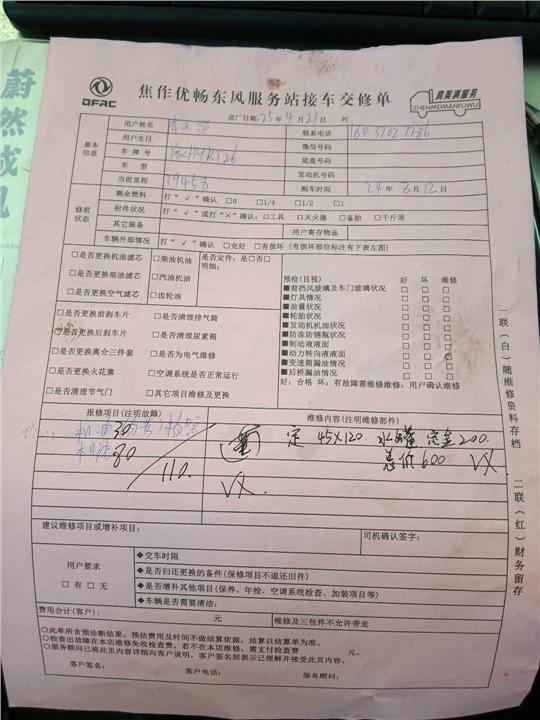 蔚然成风
DFAC
焦作优畅东风服务站接车交修单
真美满服务
ZHENMEIMANFUWU
进厂日期:25年4月21日 时
基本信息
用户姓名 联系电话
用户生日 微信号码
车牌号 底盘号码
车型 发动机号码
当前里程 39458 购车时间 24年3月12日
修前状态
剩余燃料 打“√”确认 □0 □1/4 □1/2 □1
附件状况 打“√”或打“×”确认:□工具 □灭火器 □备胎 □千斤顶
其它装备 用户寄存物品
车辆外部情况 打“√”确认 □完好 □有损坏(有损坏部位标注有下表左图)
□是否更换机油滤芯 □柴油机油 是否定件:是□否□
□是否更换柴油滤芯 □汽油机油 明细:
□是否更换空气滤芯 □齿轮油
□是否更换前刹车片 □是否清理排气筒
□是否更换后刹车片 □是否清理尿素箱
□是否更换离合三件套 □是否为电气维修
□是否更换火花塞 □空调系统是否正常运行
□是否清理节气门 □其它项目维修及更换
预检(目视) 好 坏 维修
■前挡风玻璃及车门玻璃状况 □ □ □
■灯具情况 □ □ □
■油量状况 □ □ □
■轮胎状况 □ □ □
■发动机机油状况 □ □ □
■防冻防锈瓶状况 □ □ □
■制动液液面 □ □ □
■动力转向液液面 □ □ □
■变速箱漏油情况 □ □ □
■后桥漏油情况 □ □ □
好:合格 坏:有故障需维修维修:用户确认维修
报修项目(注明故障) 维修内容(注明维修部件)
机油30
机滤80
110.
定 45X120 水罐 定金200.
总价600 VX
VX.
建议维修项目或增补项目: 司机确认签字:
用户要求
□有 □无
◆交车时限
◆是否归还更换的备件(保修项目不退还旧件)
◆是否增补其他项目(保养、年检、空调系统检查、加装项目等)
◆车辆是否需要清洁:
费用合计(客户): 元 维修及三包件不允许带走
○此单所含预诊断结果,预估费用及时间不做结算依据,结算以结算单为准。
○检查出故障在本店维修免收检查费,若不在本店维修,需支付检查费 元。
○服务顾问已将此页内容详细向客户说明,客户签名则表示已理解并接受此页内容。
客户签名: 客户电话: 服务顾问:
一联(白)随维修资料存档
二联(红)财务留存